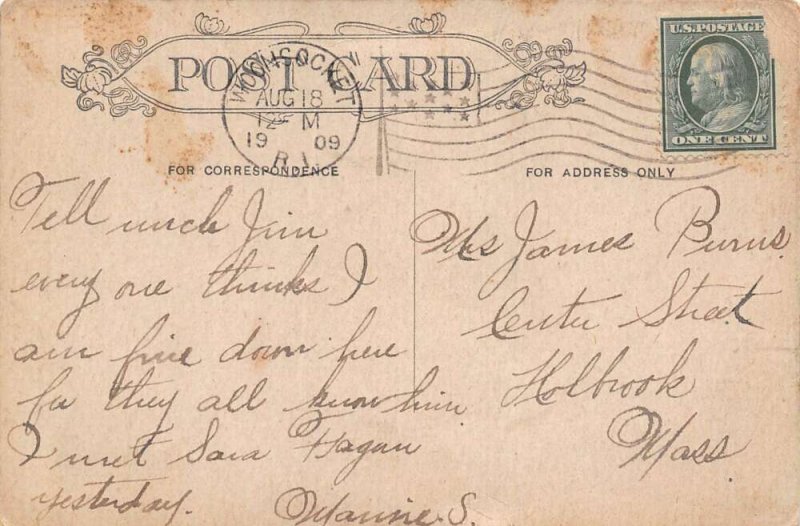 POST CARD
WOONSOCKET
AUG 18
12 M
1909
R.I.
U.S. POSTAGE
ONE CENT
FOR CORRESPONDENCE
FOR ADDRESS ONLY
Tell uncle Jim
every one thinks I
am fine down here
for they all know him
I met Sara Fagan
yesterday.
Mamie S.
Mrs James Burns.
Center Street
Holbrook
Mass